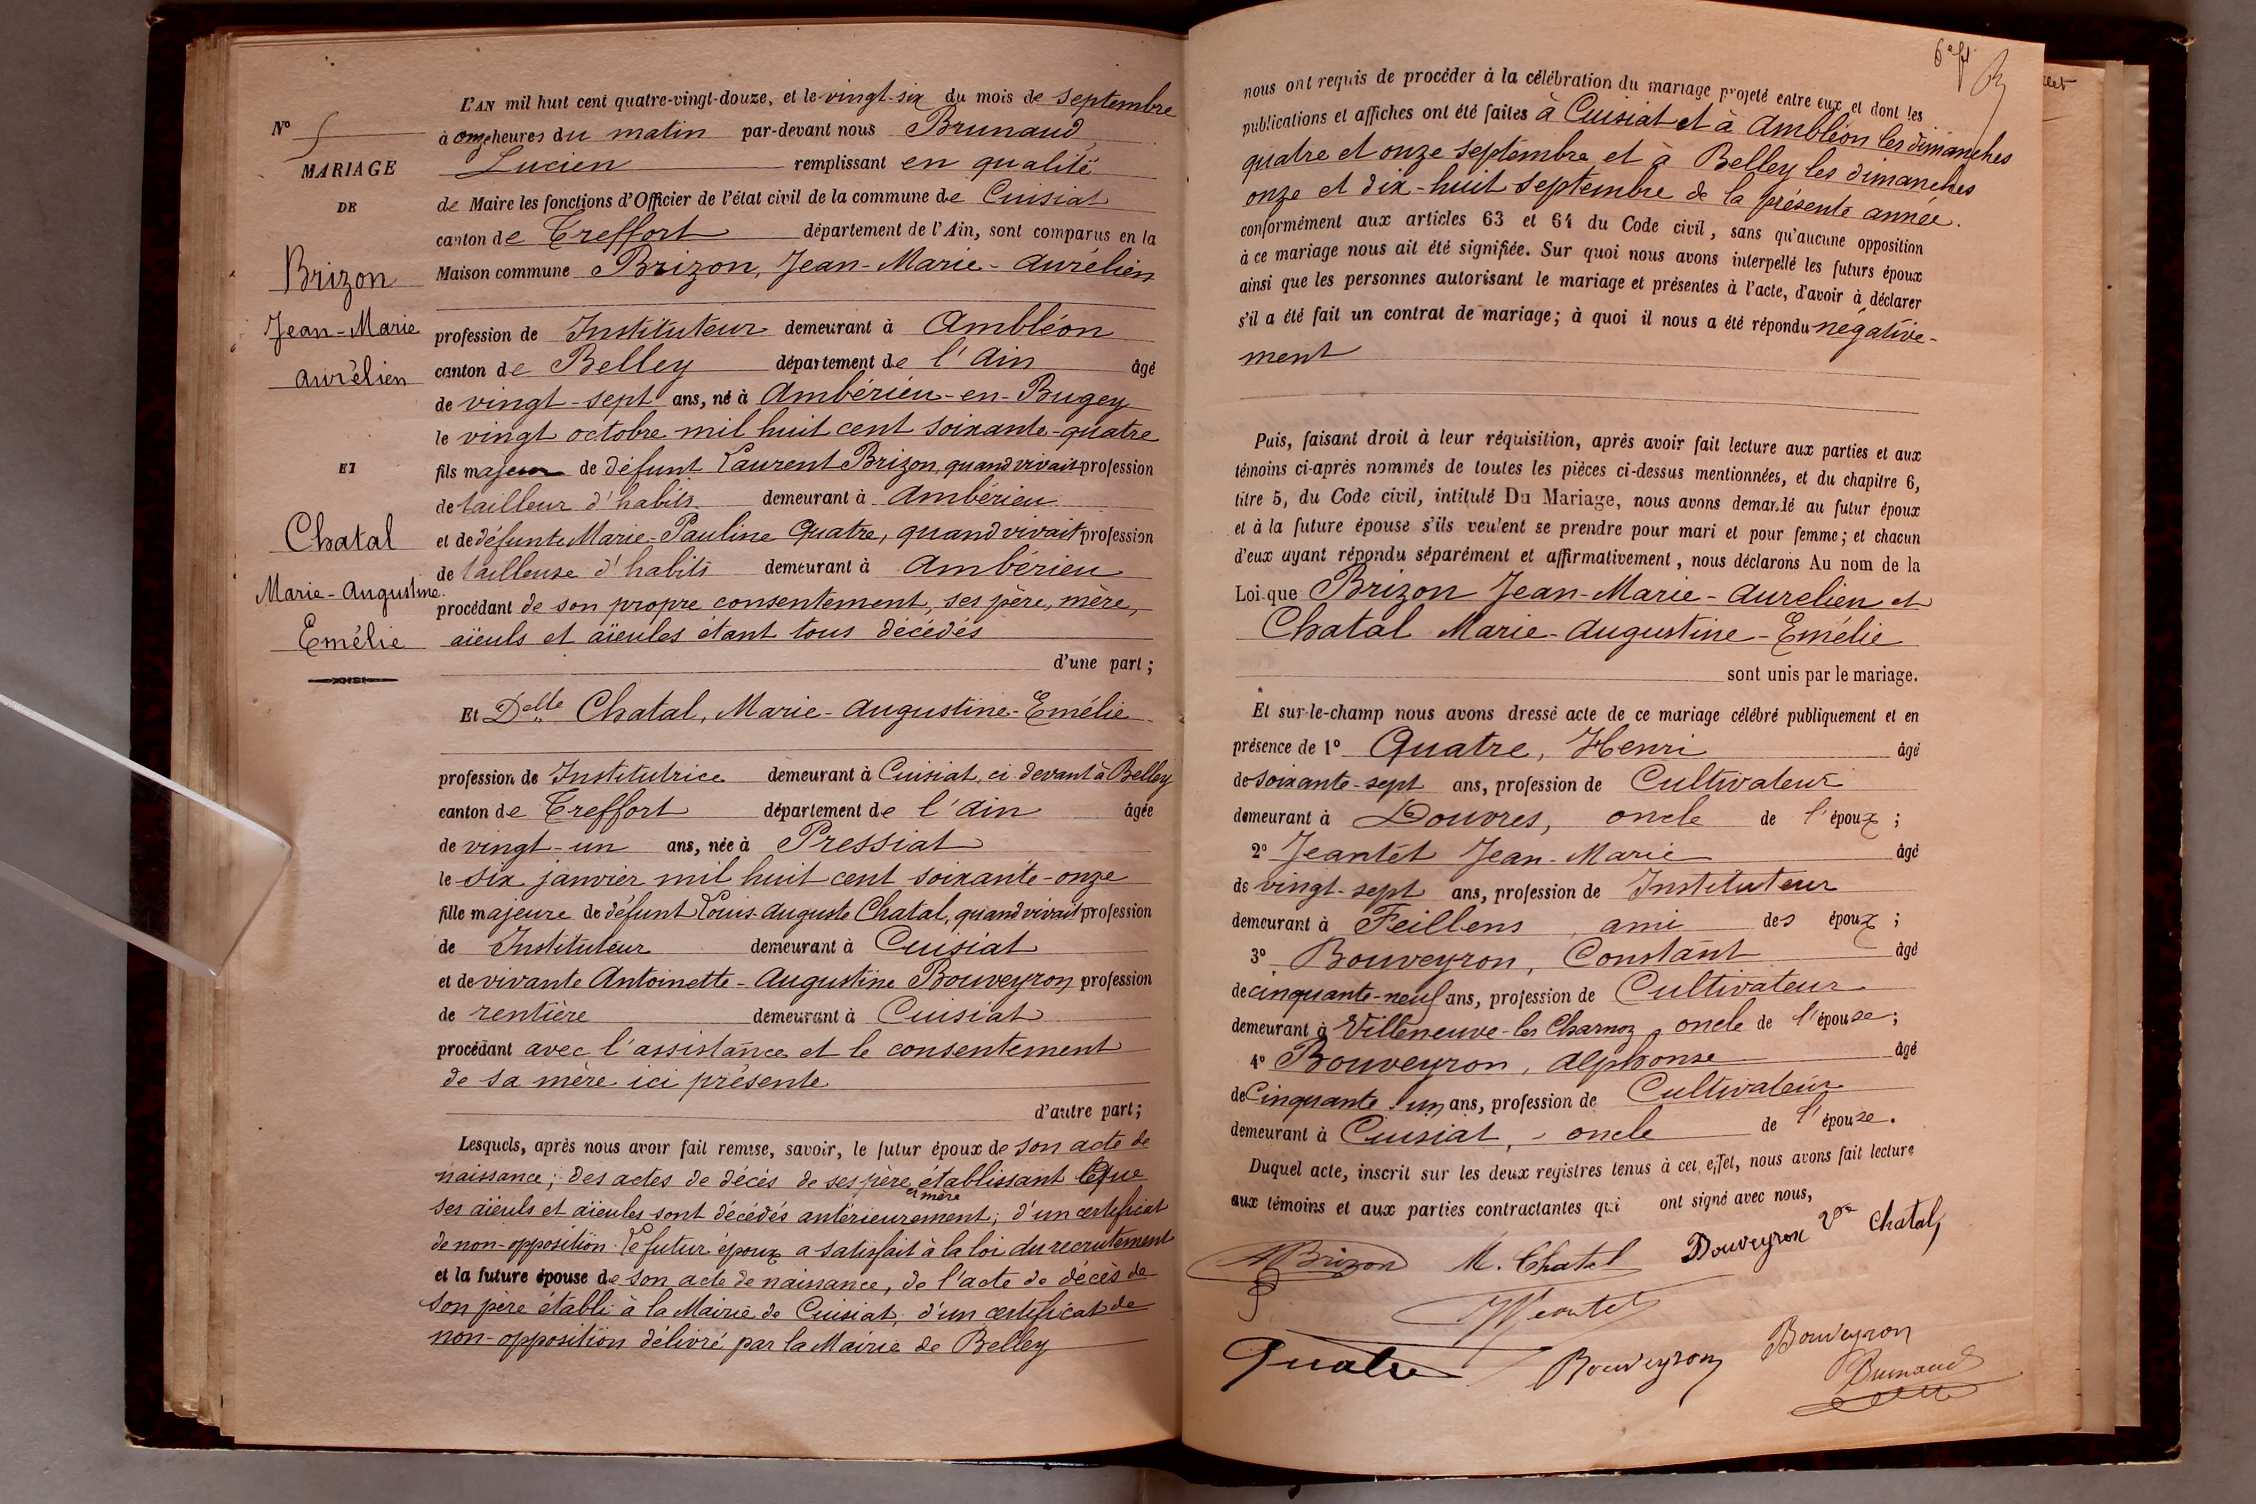 N° 5
MARIAGE
DE
Brizon
Jean-Marie
Aurélien
ET
Chatal
Marie-Augustine
Emélie
L'AN mil huit cent quatre-vingt-douze, et le vingt-six du mois de Septembre
à onze heures du matin par-devant nous Brunaud
Lucien remplissant en qualité
de Maire les fonctions d'Officier de l'état civil de la commune de Cuisiat
canton de Treffort département de l'Ain, sont comparus en la
Maison commune Brizon, Jean-Marie-Aurélien
profession de Instituteur demeurant à Ambléon
canton de Belley département de l'Ain âgé
de vingt-sept ans, né à Ambérieu-en-Bugey
le vingt octobre mil huit cent soixante-quatre
fils majeur de défunt Laurent Brizon, quand vivait profession
de tailleur d'habits demeurant à Ambérieu
et de défunte Marie-Pauline Quatre, quand vivait profession
de tailleuse d'habits demeurant à Ambérieu
procédant de son propre consentement, ses père, mère,
aïeuls et aïeules étant tous décédés
d'une part;
Et Delle Chatal, Marie-Augustine-Emélie
profession de Institutrice demeurant à Cuisiat, ci-devant à Belley
canton de Treffort département de l'Ain âgée
de vingt-un ans, née à Pressiat
le six janvier mil huit cent soixante-onze
fille majeure de défunt Louis-Auguste Chatal, quand vivait profession
de Instituteur demeurant à Cuisiat
et de vivante Antoinette-Augustine Bouveyron profession
de rentière demeurant à Cuisiat
procédant avec l'assistance et le consentement
de sa mère ici présente
d'autre part;
Lesquels, après nous avoir fait remise, savoir, le futur époux de son acte de
naissance; des actes de décès de ses père et mère établissant que
ses aïeuls et aïeules sont décédés antérieurement; d'un certificat
de non-opposition. Le futur époux a satisfait à la loi du recrutement
et la future épouse de son acte de naissance, de l'acte de décès de
son père établi à la Mairie de Cuisiat, d'un certificat de
non-opposition délivré par la Mairie de Belley
nous ont requis de procéder à la célébration du mariage projeté entre eux et dont les
publications et affiches ont été faites à Cuisiat et à Ambléon les dimanches
quatre et onze septembre et à Belley les dimanches
onze et dix-huit septembre de la présente année.
conformément aux articles 63 et 64 du Code civil, sans qu'aucune opposition
à ce mariage nous ait été signifiée. Sur quoi nous avons interpellé les futurs époux
ainsi que les personnes autorisant le mariage et présentes à l'acte, d'avoir à déclarer
s'il a été fait un contrat de mariage; à quoi il nous a été répondu négative-
ment
Puis, faisant droit à leur réquisition, après avoir fait lecture aux parties et aux
témoins ci-après nommés de toutes les pièces ci-dessus mentionnées, et du chapitre 6,
titre 5, du Code civil, intitulé Du Mariage, nous avons demandé au futur époux
et à la future épouse s'ils veulent se prendre pour mari et pour femme; et chacun
d'eux ayant répondu séparément et affirmativement, nous déclarons Au nom de la
Loi que Brizon Jean-Marie-Aurelien et
Chatal Marie-Augustine-Emélie
sont unis par le mariage.
Et sur-le-champ nous avons dressé acte de ce mariage célébré publiquement et en
présence de 1° Quatre, Henri âgé
de soixante-sept ans, profession de Cultivateur
demeurant à Douvres, oncle de l'époux;
2° Jeantet Jean-Marie âgé
de vingt-sept ans, profession de Instituteur
demeurant à Feillens, ami des époux;
3° Bouveyron, Constant âgé
de cinquante-neuf ans, profession de Cultivateur
demeurant à Villeneuve-les-Charnoz, oncle de l'épouse;
4° Bouveyron, Alphonse âgé
de Cinquante-un ans, profession de Cultivateur
demeurant à Cuisiat, - oncle de l'épouse.
Duquel acte, inscrit sur les deux registres tenus à cet effet, nous avons fait lecture
aux témoins et aux parties contractantes qui ont signé avec nous,
ABrizon M. Chatal Bouveyron Vve Chatal
Jeantet
Quatre Bouveyron Bouveyron
Brunaud